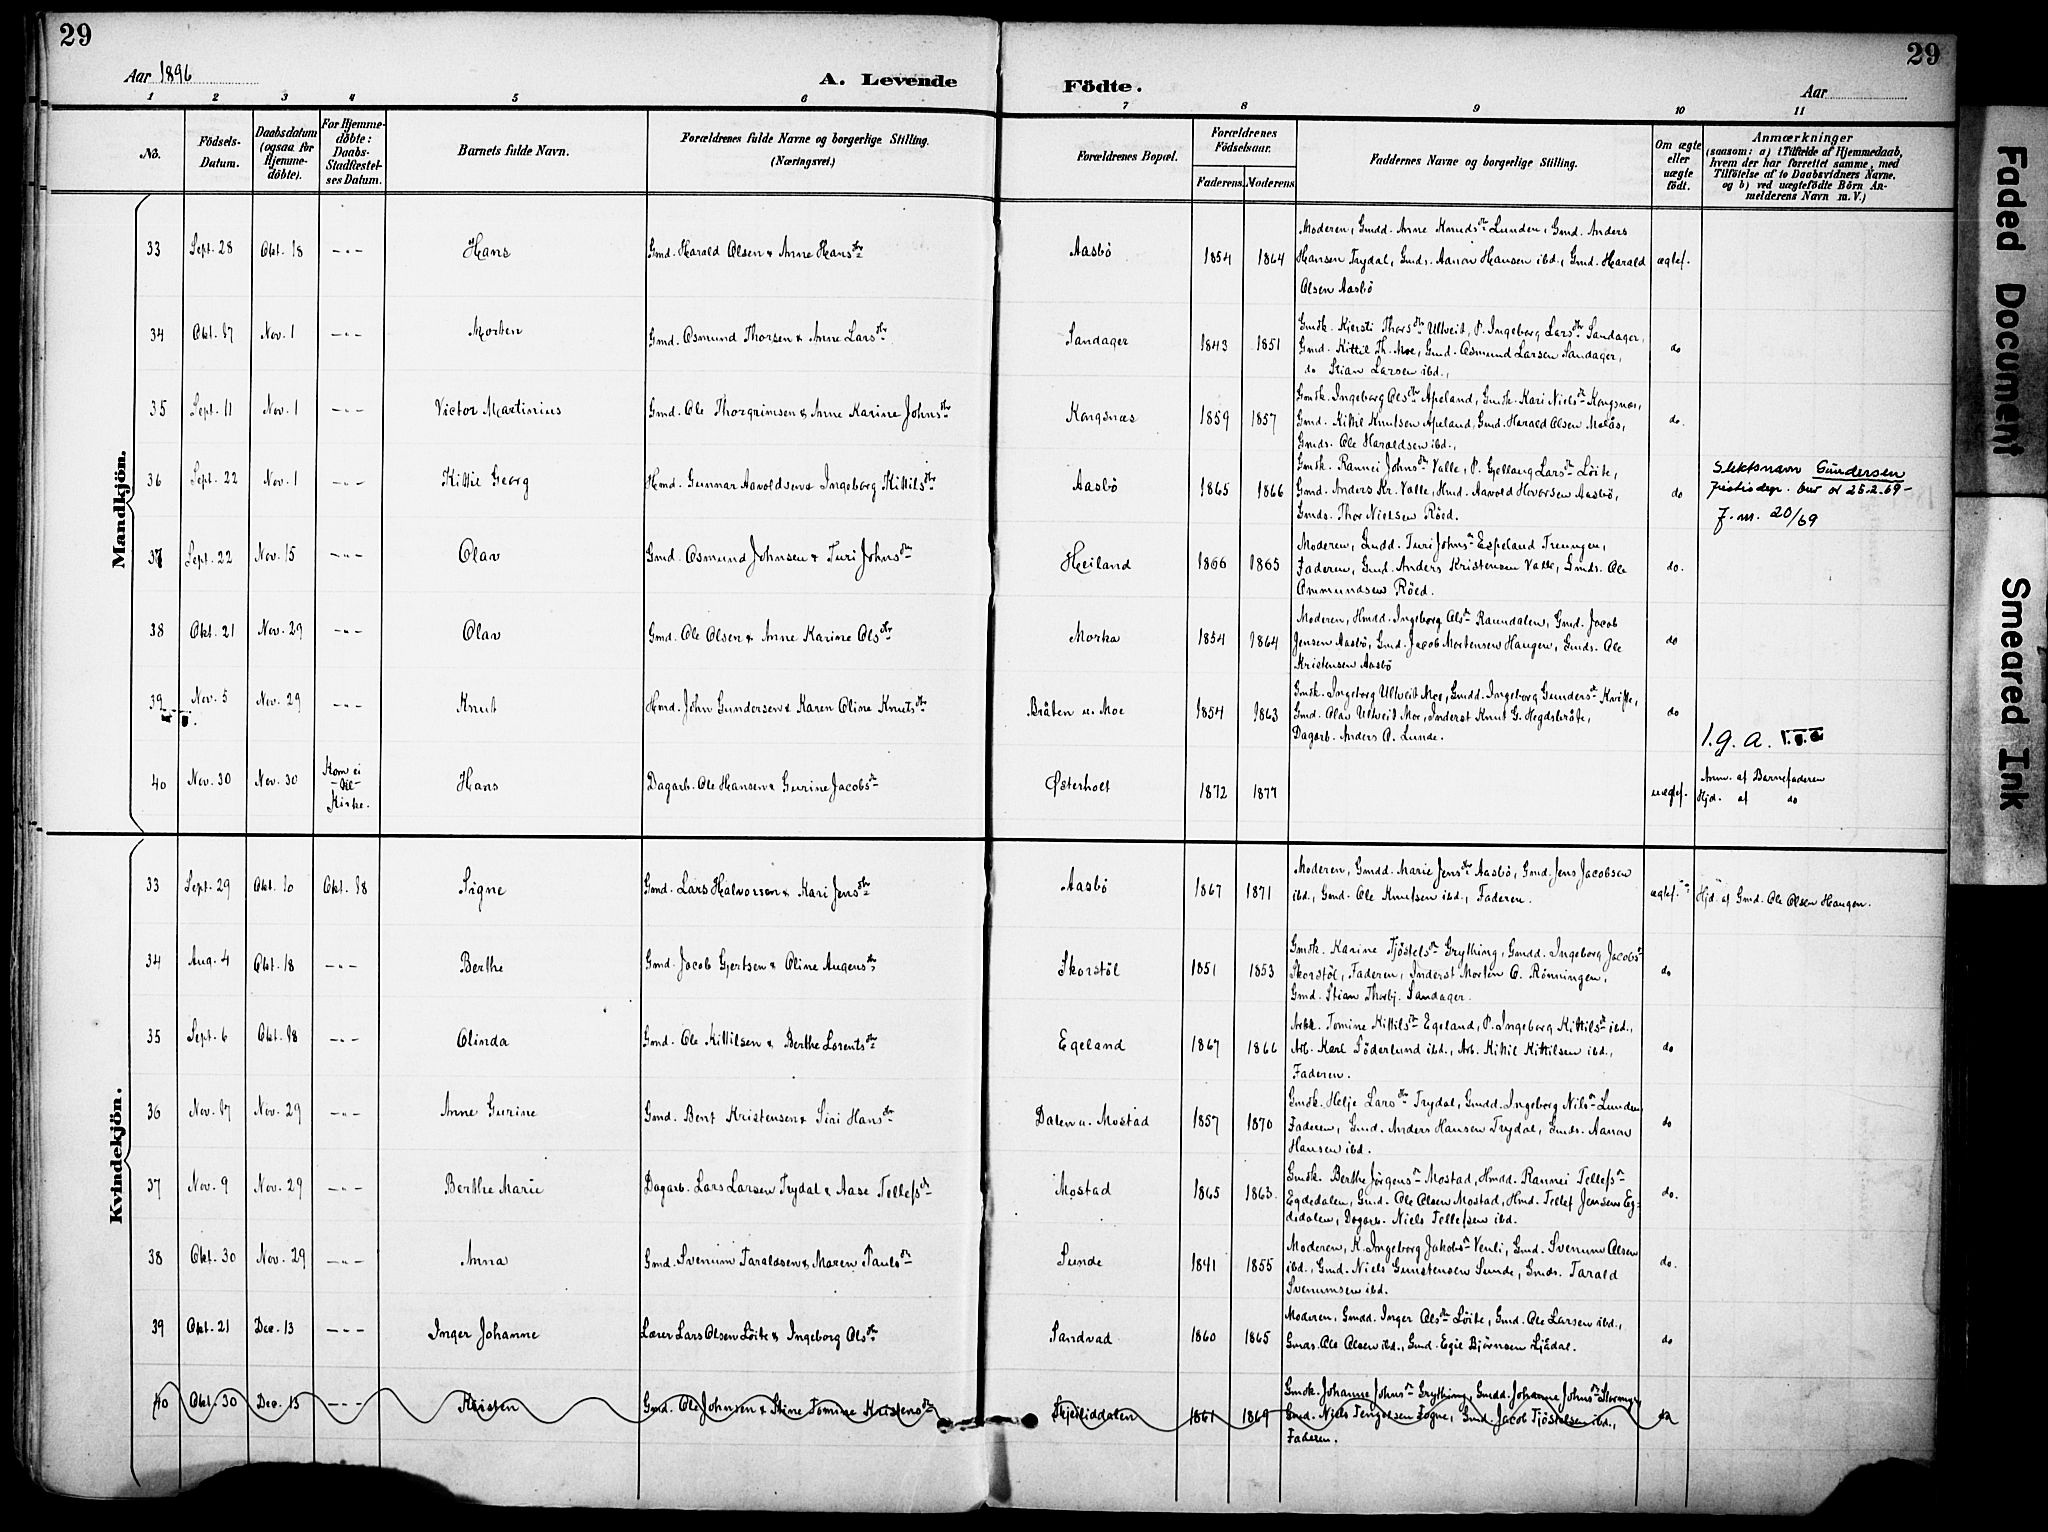 29
29
Aar 1896
A. Levende Födte.
Aar
1 2 3 4 5 6 7 8 9 10 11
No.
Födsels-Datum.
Daabsdatum (ogsaa for Hjemme-döbte).
For Hjemme-döbte: Daabs-Stadfæstel-ses Datum.
Barnets fulde Navn.
Forældrenes fulde Navne og borgerlige Stilling. (Næringsvei.)
Forældrenes Bopæl.
Forældrenes Födselsaar.
Faderens. Moderens.
Faddernes Navne og borgerlige Stilling.
Om ægte eller uægte født.
Anmærkninger
(saasom: a) i Tilfælde af Hjemmedaab,
hvem der har forrettet samme, med
Tilföielse af to Daabsvidners Navne.
og b) ved uægtefödte Börn An-
melderens Navn m. V.)
Mandkjön.
33 Sept. 28 Okt. 18 -"- Hans Gmd. Harald Olsen & Anne Hansdtr Aasbö 1854 1864 Moderen, Gmdd. Anne Knudsdtr Lunden, Gmd. Anders
Hansen Trydal, Gmds. Aanon Hansen ibd., Gmd. Harald ægtef.
Olsen Aasbö
34 Okt. 17 Nov. 1 -"- Morten Gmd. Osmund Thorsen & Anne Larsdtr Sandager 1843 1851 Gmdk. Kjersti Thorsdtr Ultveit, P. Ingeborg Larsdtr Sandager,
Gmd. Kittil Th. Moe, Gmd. Osmund Larsen Sandager, do
do Stian Larsen ibd.,
35 Sept. 11 Nov. 1 -"- Victor Martinius Gmd. Ole Thorgrimsen & Anne Karine Johnsdtr Kongsnæs 1859 1857 Gmdk. Ingeborg Olsdtr Apeland, Gmdk. Kari Nielsdtr Kongsnæs,
Gmd. Kittil Knutsen Apeland, Gmd. Harald Olsen Molås, do.
Gmds. Ole Haraldsen ibd.,
36 Sept. 22 Nov. 1 -"- Kittil Georg Hmd. Gunnar Aavoldsen & Ingeborg Kittilsdtr Aasbö 1865 1866 Gmdk. Rannei Johnsdtr Valle, P. Gjellaug Larsdtr Löite,
Gmd. Anders Kr. Valle, Hmd. Aavold Hovorsen Aasbö, do
Gmds. Thor Nielsen Röed.
Slektsnavn Gundersen
Justisdep. bev av 25.2.69-
J.nr. 20/69
37 Sept. 22 Nov. 15 -"- Olav Gmd. Osmund Johnsen & Turi Johnsdtr Heiland 1866 1865 Moderen, Gmdd. Turi Johnsdtr Espeland Treungen,
Faderen, Gmd. Anders Kristensen Valle, Gmds. Ole do.
Ommundsen Röed.
38 Okt. 21 Nov. 29 -"- Olav Gmd. Ole Olsen & Anne Karine Olsdtr Morka 1854 1864 Moderen, Hmdd. Ingeborg Olsdtr Raundalen, Gmd. Jacob
Jensen Aasbö, Gmd. Jacob Mortensen Haugen, Gmds. Ole do
Kristensen Aasbö
39 Nov. 5 Nov. 29 -"- Knut Hmd. John Gundersen & Karen Oline Knutsdtr Bråten u. Moe 1854 1863 Gmdk. Ingeborg Ultveit Moe, Gmdd. Ingeborg Gundersdtr Kvifte,
Gmd. Olav Ultveit Moe, Inderst Knut G. Hegdsbråte, do
Dagarb. Anders O. Lunde.
I.g.a.
40 Nov. 30 Nov. 30 Kom ei til Kirke. Hans Dagarb. Ole Hansen & Gurine Jacobsdtr Østerholt 1872 1877 uægtef. Anm. af Barnefaderen
Hjd. af do
Kvindekjön.
33 Sept. 29 Okt. 10 Okt. 18 Signe Gmd. Lars Halvorsen & Kari Jensdtr Aasbö 1867 1871 Moderen, Gmdd. Marie Jensdtr Aasbö, Gmd. Jens Jacobsen
ibd., Gmd. Ole Knutsen ibd., Faderen. ægtef. Hjd. af Gmd. Ole Olsen Haugen.
34 Aug. 4 Okt. 18 -"- Berthe Gmd. Jacob Gjertsen & Oline Augensdtr Skorstöl 1851 1853 Gmdk. Karine Tjöstelsdtr Grything, Gmdd. Ingeborg Jacobsdtr
Skorstöl, Faderen, Inderst Morten O. Rönningen, do
Gmd. Stian Thorbj. Sandager.
35 Sept. 6 Okt. 18 -"- Olinda Gmd. Ole Kittilsen & Berthe Lorentsdtr Egeland 1867 1866 Arbk. Tomine Kittilsdtr Egeland, P. Ingeborg Kittilsdtr ibd.,
Arb. Karl Söderlund ibd., Arb. Kittil Kittilsen ibd., do
Faderen.
36 Nov. 17 Nov. 29 -"- Anne Gurine Gmd. Bent Kristensen & Siri Hansdtr Dalen u. Mostad 1857 1870 Gmdk. Helje Larsdtr Trydal, Gmdd. Ingeborg Nilsdtr Lunden
Faderen, Gmd. Anders Hansen Trydal, Gmds. Aanon do
Hansen ibd.
37 Nov. 9 Nov. 29 -"- Berthe Marie Dagarb. Lars Larsen Trydal & Aase Tellefsdtr Mostad 1865 1863. Gmdk. Berthe Jörgensdtr Mostad, Hmdd. Rannei Tellefsdtr
Egdedalen, Gmd. Ole Olsen Mostad, Hmd. Tellef Jensen Eg- do.
dedalen, Dagarb. Niels Tellefsen ibd.
38 Okt. 30 Nov. 29 -"- Anna Gmd. Svenum Taraldsen & Maren Paulsdtr Sunde 1841 1855 Moderen, K. Ingeborg Jakobsdtr Venli, Gmd. Svenum Olsen
ibd., Gmd. Niels Gunstensen Sunde, Gmds. Tarald do.
Svenumsen ibd.
39 Okt. 21 Dec. 13 -"- Inger Johanne Lærer Lars Olsen Löite & Ingeborg Olsdtr Sandvad 1860 1865 Moderen, Gmdd. Inger Olsdtr Löite, Gmd. Ole Larsen ibd.,
Gmds. Ole Olsen ibd., Gmd. Egil Bjørnsen Ljådal. do
40 Okt. 30 Dec. 13 -"- Kristen Gmd. Ole Johnsen & Stine Tomine Kristensdtr Skjerliddalen 1861 1869 Gmdk. Johanne Johnsdtr Grything, Gmdd. Johanne Johnsdtr
Gmd. Niels Tengelsen Fogne, Gmd. Jacob Tjöstelsen ibd., do
Faderen.
Faded Document
Smeared Ink